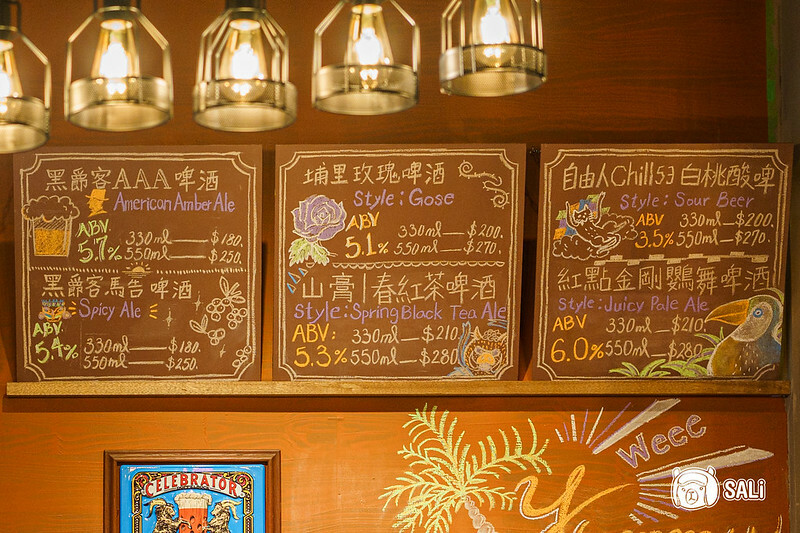 黑爵客AAA啤酒
American Amber Ale
ABV
5.7%
330ml—$180.
550ml—$250.
黑爵客馬告啤酒
Spicy Ale
ABV
5.4%
330ml—$180.
550ml—$250.
埔里玫瑰啤酒
Style:Gose
ABV
5.1%
330ml—$200.
550ml—$270.
山膏|春紅茶啤酒
Style:Spring Black Tea Ale
ABV:
5.3%
330ml—$210.
550ml—$280.
自由人Chill 53白桃酸啤
Style:Sour Beer
ABV
3.5%
330ml—$200.
550ml—$270.
紅點金剛鸚舞啤酒
Style:Juicy Pale Ale
ABV
6.0%
330ml—$210.
550ml—$280.
Weee
CELEBRATOR
SALi